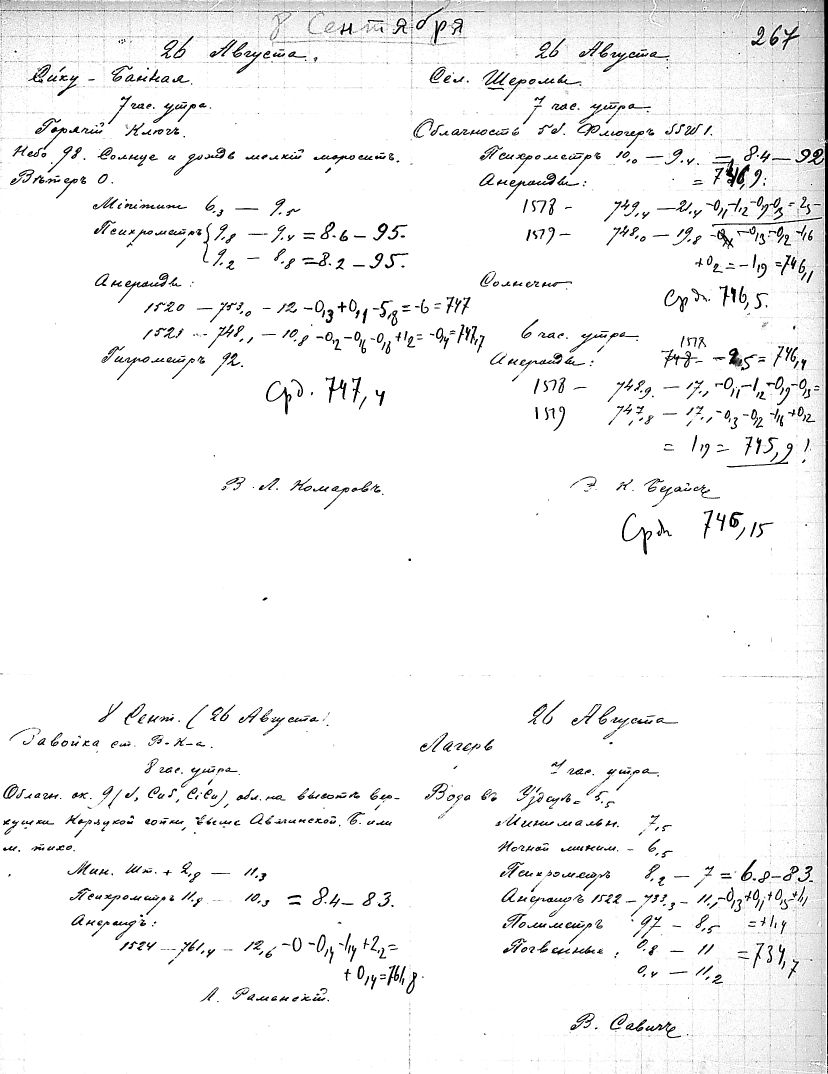 8 Сентября
267
26 Августа.
Банная.
7 час. утра.
Горячій Ключъ.
Небо 98. Солнце и дождь мелкій моросить.
Вѣтеръ 0.
Minimum 6,3 — 9,5
Психрометръ 9,8 — 9,4 = 8.6 — 95.
9,2 — 8,8 = 8.2 — 95.
Анероиды:
1520 — 753,0 — 12 — 0,3 + 0,1 — 5,8 = -6 = 747
1521 — 748,1 — 10,8 — 0,2 — 0,6 — 0,8 + 1,2 = -0,4 = 747,7
Гигрометръ 92.
Срд. 747,4
В. Л. Комаровъ.
26 Августа.
Сел. Шеромы.
7 час. утра.
Облачность 5 Флюгеръ SSW1.
Психрометръ 10,0 — 9,4 = 8.4 — 92
Анероиды: = 746,9.
1578 — 749,4 — 21,4 -0,1 -1,2 -0,9 -0,3 = 2,5-
1579 — 748,0 — 19,8 -0,3 -0,2 -1,6
+0,2 = -1,9 = 746,1
Солнечно.
Срдн. 746,5.
6 час. утра.
1578
Анероиды: - 2,5 = 746,4
1578 — 748,9 — 17, -0,1 -1,2 -0,9 -0,3 =
1579 747,8 — 17, -0,3 -0,2 -1,6 +0,2
= 1,9 = 745,9!
Э. К. Безайсъ
Срдн 746,15
8 Сент. (26 Августа).
Завойка ст. П-К-а.
8 час. утра.
Облачн. ок. 9 (N, CuS, CiCu), обл. на высотѣ вер-
хушки Корякой сопки, выше Авачинской. Б. или
м. тихо.
Мин. Шт. + 2,8 — 11,3
Психрометръ 11,8 — 10,3 = 8.4 — 83.
Анероидъ:
1524 — 761,4 — 12,6 -0 -0,4 -1,4 +2,2 =
+ 0,4 = 761,8.
Л. Раменскій.
26 Августа
Лагерь
7 час. утра.
Вода въ = 5,5
Минимальн. 7,5
Ночной миним. — 6,5
Психрометръ 8,2 — 7 = 6.8 — 83.
Анероидъ 1522 — 733,3 — 11, -0,3 +0,1 +0,5 +1,1
Полиметръ 97 — 8,5 = +1,4
Почвенные: 0,8 — 11 = 734,7
0,4 — 11,2
В. Савичъ.